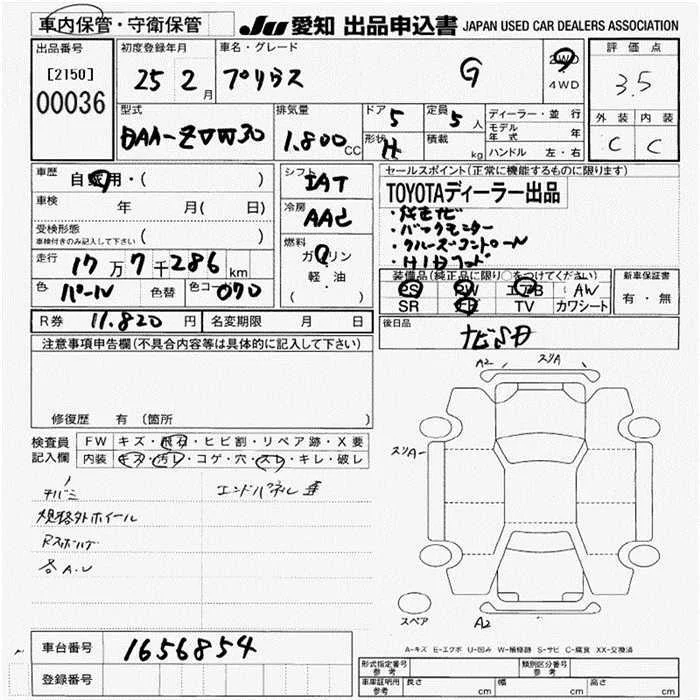 車内保管・守衛保管 JU 愛知 出品申込書 JAPAN USED CAR DEALERS ASSOCIATION
出品番号 初度登録年月 車名・グレード 2WD 評価点
[2150] 25 2 月 プリウス G 4WD 3.5
00036
型式 排気量 ドア 5 定員 5 人 ディーラー・並行 外装 内装
DAA-ZVW30 1.800 CC 形状 H 積載 kg モデル年式 年 C C
ハンドル 左・右
車歴 自家用・( ) シフト IAT セールスポイント(正常に機能するものに限ります)
車検 年 月( 日) 冷房 AAC TOYOTAディーラー出品
・純正ナビ
受検形態 ( ) ・バックモニター
車検付きのみ記入して下さい 燃料 ・クルーズコントロール
走行 17 万 7 千 286 km ガソリン
軽・油 装備品(純正品に限り○をつけてください) 新車保証書
色 パール 色替 色コード 070 ( ) PS PW エアB AW 有・無
SR TV カワシート
R券 11.820 円 名変期限 月 日 後日品
ナビSD
注意事項申告欄(不具合内容等は具体的に記入して下さい)
A2 スリA
修復歴 有 (箇所 )
検査員 FW キズ・飛石・ヒビ割・リペア跡・X要
記入欄 内装 キズ・汚レ・コゲ・穴・スレ・キレ・破レ
スリA
チバミ エンドパネル
規格外ホイール
各A.U
スペア A2
車台番号 1656854
A-キズ E-エクボ U-凹み W-補修跡 S-サビ C-腐食 XX-交換済
登録番号
形式指定番号 参考 類別区分番号 参考
車庫証明用 参考 長さ cm 幅 cm 高さ cm